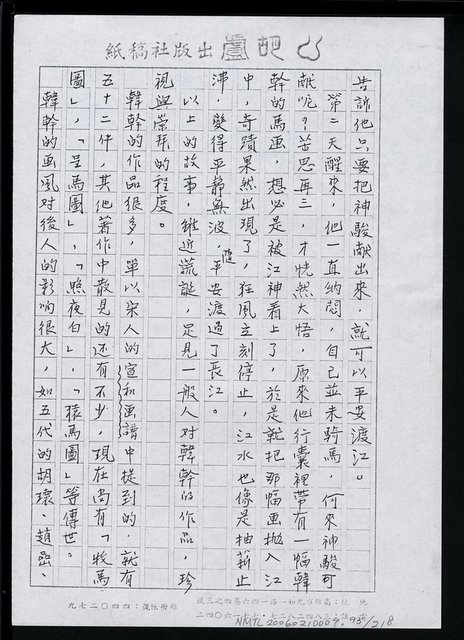 紙稿社版出
告訴他只要把神駿献出來，就可以平安渡江。
第二天醒來，他一直納悶，自己並未騎馬，何來神駿可
献呢？苦思再三，才恍然大悟，原來他行囊裡帶有一幅韓
幹的馬画，想必是被江神看上了，於是就把那幅画抛入江
中，奇蹟果然出現了，狂風立刻停止，江水也像是抽薪止
沸，變得平靜無波，平安渡過了長江。
以上的故事，雖近謊誕，足見一般人对韓幹的作品，珍
視與崇拜的程度。
韓幹的作品很多，單以宋人的宣和画譜中提到的，就有
五十二件，其他著作中散見的还有不少，現在尚有「牧馬
圖」，「呈馬圖」，「照夜白」，「猿馬圖」等傳世。
韓幹的画風对後人的影响很大，如五代的胡瓌、趙嵒、
NMTL20060210007
218